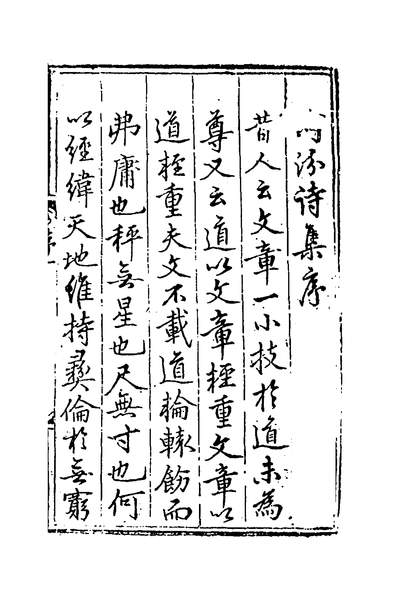 汾詩集序
昔人云文章一小技於道未為
尊又云道以文章輕重文章以
道輕重夫文不載道輪轅飾而
弗庸也秤無星也尺無寸也何
以經緯天地維持彝倫於無窮